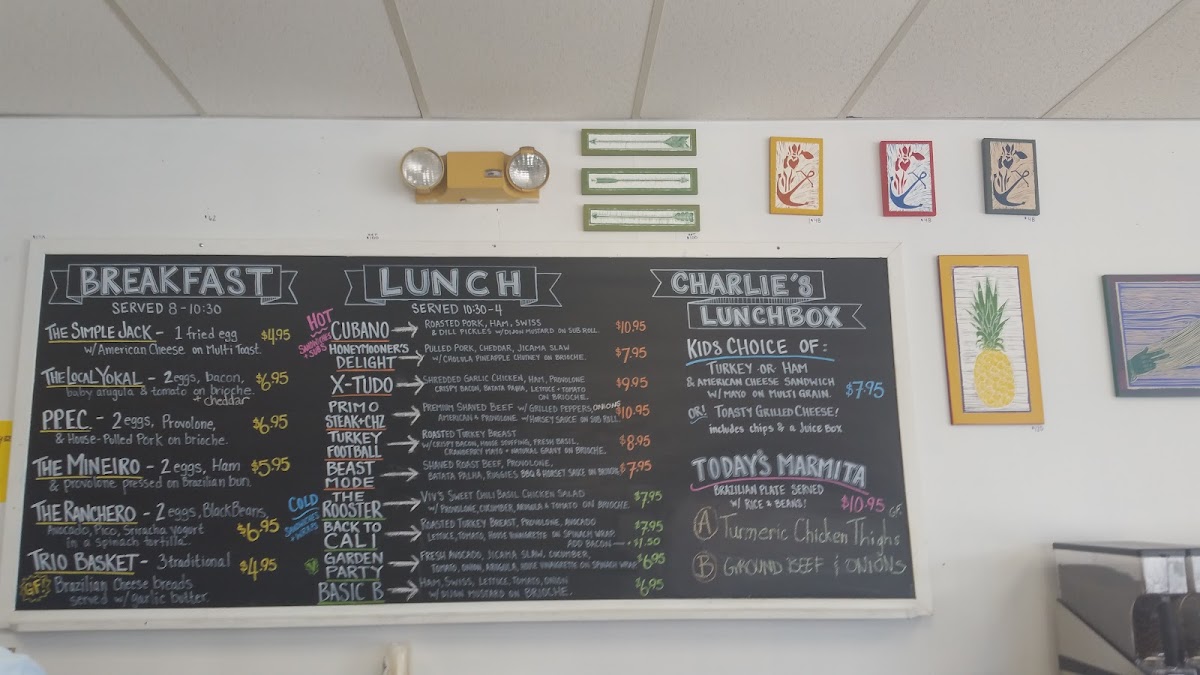 BREAKFAST
SERVED 8-10:30
THE SIMPLE JACK - 1 fried egg $4.95
w/American Cheese on Multi Toast.
THE LOCAL YOKAL - 2 eggs, bacon, $6.95
baby arugula & tomato on brioche.
+ cheddar
PPEC - 2 eggs, Provolone, $6.95
& House-Pulled Pork on brioche.
THE MINEIRO - 2 eggs, Ham $5.95
& provolone pressed on Brazilian bun.
THE RANCHERO - 2 eggs, Black Beans,
Avocado, Pico, Sriracha Yogurt $6.95
in a spinach tortilla.
TRIO BASKET - 3 traditional $4.95
GF Brazilian Cheese breads
served w/ garlic butter.
LUNCH
SERVED 10:30-4
HOT
SANDWICHES
+ SUBS
CUBANO ROASTED PORK, HAM, SWISS $10.95
& DILL PICKLES w/DIJON MUSTARD ON SUB ROLL.
HONEYMOONER'S PULLED PORK, CHEDDAR, JICAMA SLAW $7.95
DELIGHT w/ CHOLULA PINEAPPLE CHUTNEY ON BRIOCHE.
X-TUDO SHREDDED GARLIC CHICKEN, HAM, PROVOLONE $9.95
CRISPY BACON, BATATA PALHA, LETTUCE + TOMATO
ON BRIOCHE.
PRIMO PREMIUM SHAVED BEEF w/ GRILLED PEPPERS, ONIONS $10.95
STEAK+CHZ AMERICAN & PROVOLONE w/HORSEY SAUCE ON SUB ROLL.
TURKEY ROASTED TURKEY BREAST $8.95
FOOTBALL w/CRISPY BACON, HOUSE STUFFING, FRESH BASIL,
CRANBERRY MAYO + NATURAL GRAVY ON BRIOCHE.
BEAST SHAVED ROAST BEEF, PROVOLONE, $7.95
MODE BATATA PALHA, BBQ & HORSEY SAUCE ON BRIOCHE
COLD
SANDWICHES
& WRAPS
THE VIV'S SWEET CHILI BASIL CHICKEN SALAD $7.95
ROOSTER w/ PROVOLONE, CUCUMBER, ARUGULA & TOMATO ON BRIOCHE.
BACK TO ROASTED TURKEY BREAST, PROVOLONE, AVOCADO $7.95
CALI LETTUCE, TOMATO, HOUSE VINAIGRETTE ON SPINACH WRAP.
ADD BACON + $1.50
V GARDEN FRESH AVOCADO, JICAMA SLAW, CUCUMBER, $6.95
PARTY TOMATO, ONION, ARUGULA, HOUSE VINAIGRETTE ON SPINACH WRAP
BASIC B HAM, SWISS, LETTUCE, TOMATO, ONION $6.95
w/ DIJON MUSTARD ON BRIOCHE.
CHARLIE'S
LUNCHBOX
KIDS CHOICE OF:
TURKEY OR HAM
& AMERICAN CHEESE SANDWICH $7.95
w/ MAYO ON MULTI GRAIN.
OR! TOASTY GRILLED CHEESE!
includes chips & a Juice Box
TODAY'S MARMITA
BRAZILIAN PLATE SERVED
w/ RICE & BEANS! $10.95 GF
A Turmeric Chicken Thighs
B GROUND BEEF & ONIONS